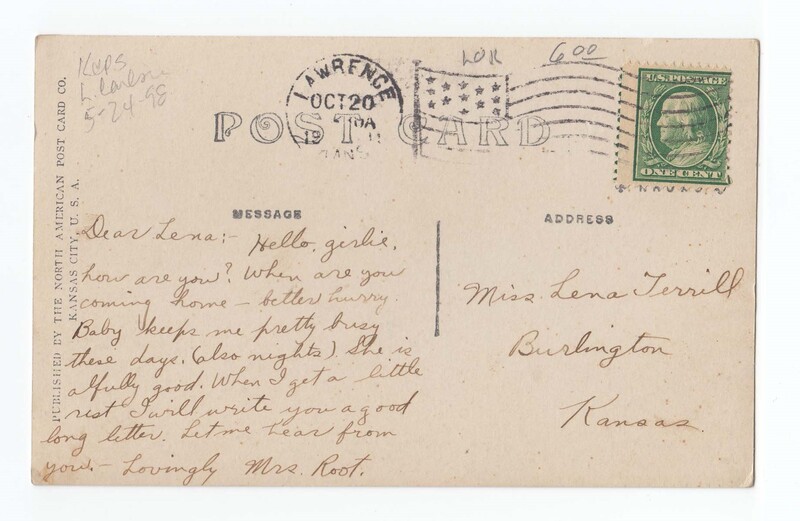 LOR
6 00
5-24-98
LAWRENCE
OCT 20
19 11
KANS.
U.S. POSTAGE
ONE CENT
POST CARD
PUBLISHED BY THE NORTH AMERICAN POST CARD CO.
KANSAS CITY, U. S. A.
MESSAGE
Dear Lena:- Hello, girlie,
how are you? When are you
coming home - better hurry.
Baby keeps me pretty busy
these days. (also nights). She is
alfully good. When I get a little
rest I will write you a good
long letter. Let me hear from
you. - Lovingly Mrs. Root.
ADDRESS
Miss Lena Terrill
Burlington
Kansas.